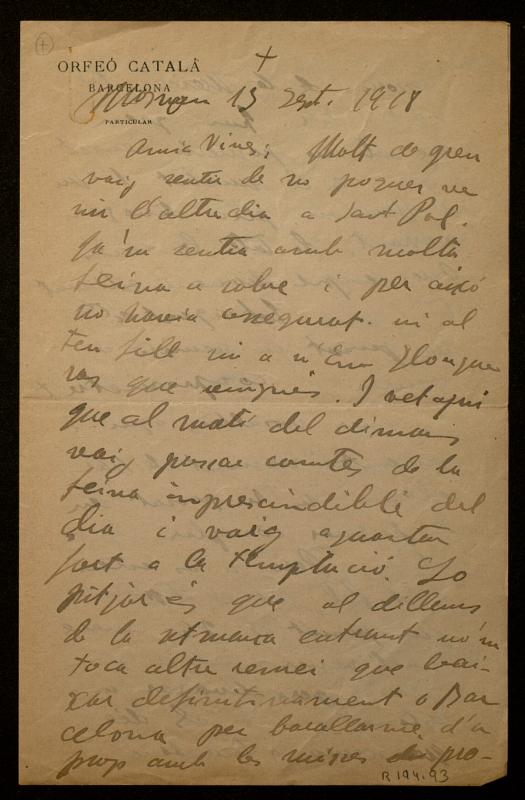 +
ORFEÓ CATALÀ
BARCELONA
PARTICULAR
13 Sept. 1918
Amic Vines; Molt de greu
vaig sentir de no poguer ve
nir l'altre dia a Sant Pol.
Ja'm sentia amb molta
feina a sobre i per això
no havia assegurat ni al
teu fill ni a n'En Llongue
ras que vingués. I vet aquí
que al matí del dimars
vaig passar comtes de la
feina imprescindible del
dia i vaig aguantar
fort a la temptació. Lo
pitjor és que al dillums
de la setmana entrant no'm
toca altre remei que bai-
xar definitivament a Bar
celona per barallarme d'a
prop amb les mises pro-
R 194.93